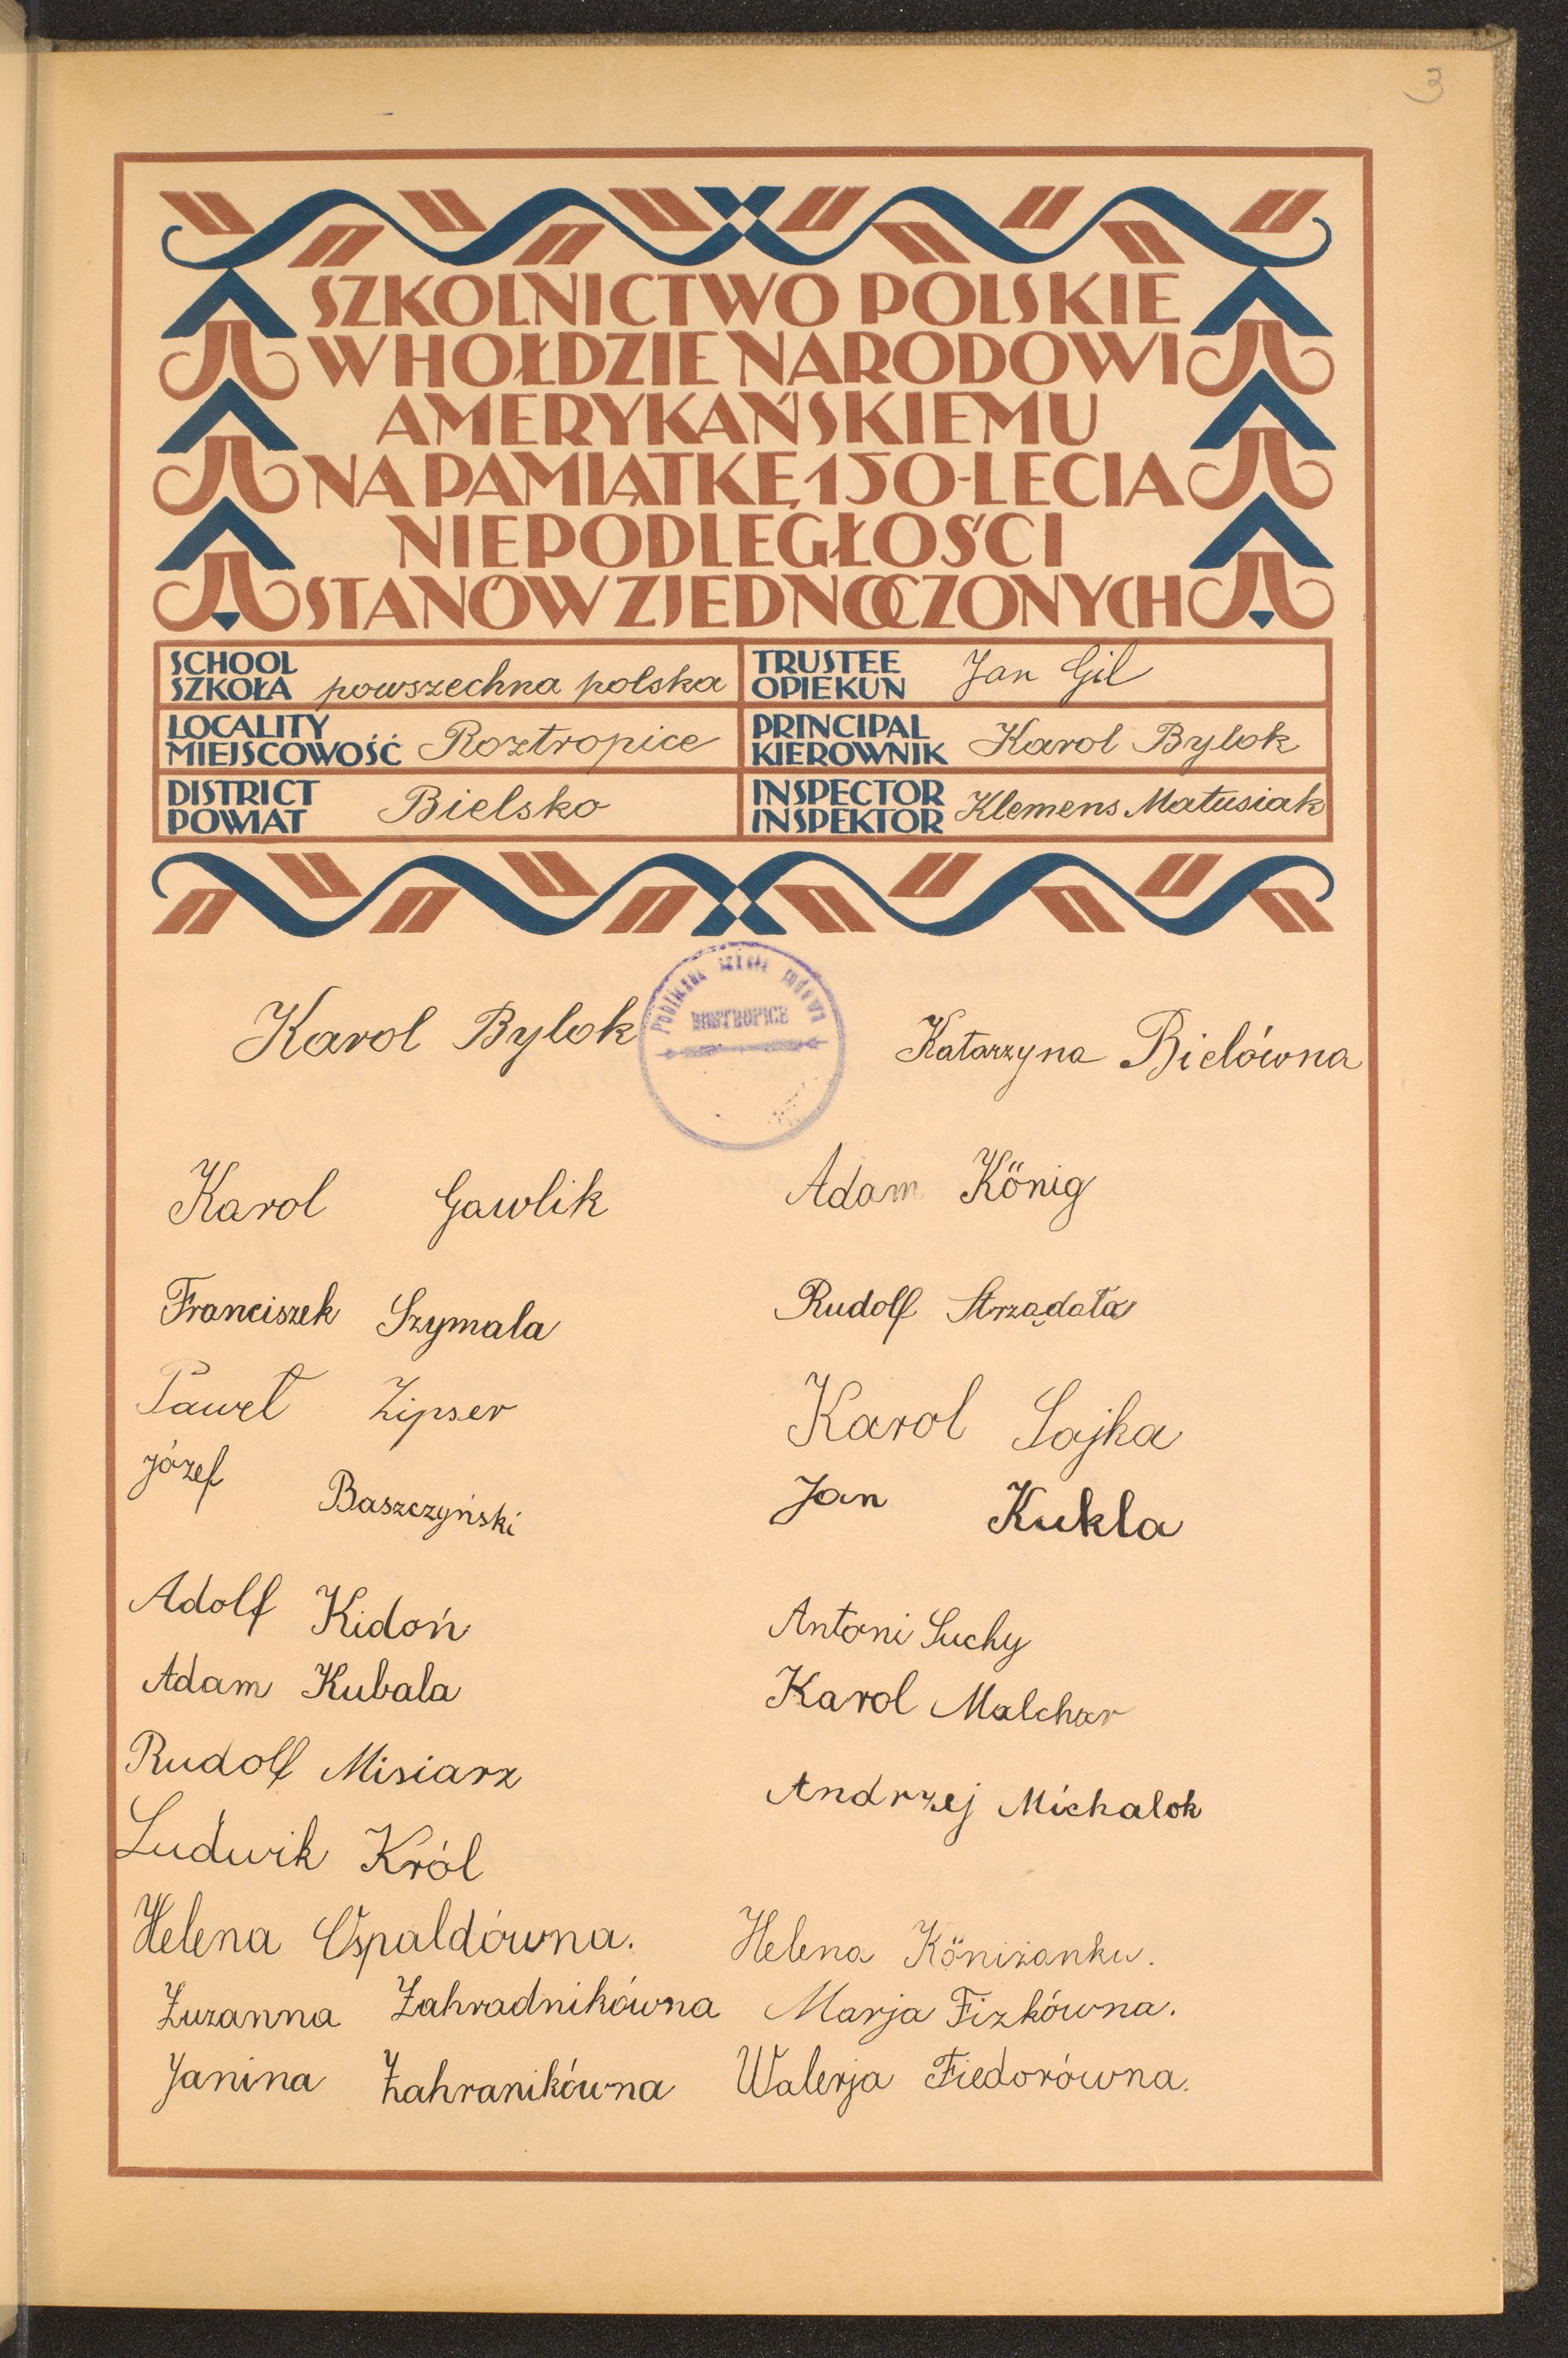 3
SZKOLNICTWO POLSKIE
W HOŁDZIE NARODOWI
AMERYKAŃSKIEMU
NA PAMIĄTKĘ 150-LECIA
NIEPODLEGŁOŚCI
STANÓW ZJEDNOCZONYCH
SCHOOL
SZKOŁA powszechna polska
TRUSTEE
OPIEKUN Jan Gil
LOCALITY
MIEJSCOWOŚĆ Roztropice
PRINCIPAL
KIEROWNIK Karol Bylok
DISTRICT
POWIAT Bielsko
INSPECTOR
INSPEKTOR Klemens Matusiak
Publiczna szkoła ludowa
ROSTROPICE
Karol Bylok
Katarzyna Bielówna
Karol Gawlik
Adam König
Franciszek Szymala
Rudolf Strządała
Paweł Zipser
Karol Sajka
Józef Baszczyński
Jan Kukla
Adolf Kidoń
Antoni Suchy
Adam Kubala
Karol Malchar
Rudolf Misiarz
Andrzej Michalok
Ludwik Król
Helena Ospaldówna.
Helena Köniżanku.
Zuzanna Zahradnikówna
Marja Fizkówna.
Janina Zahranikówna
Walerja Fiedorówna.